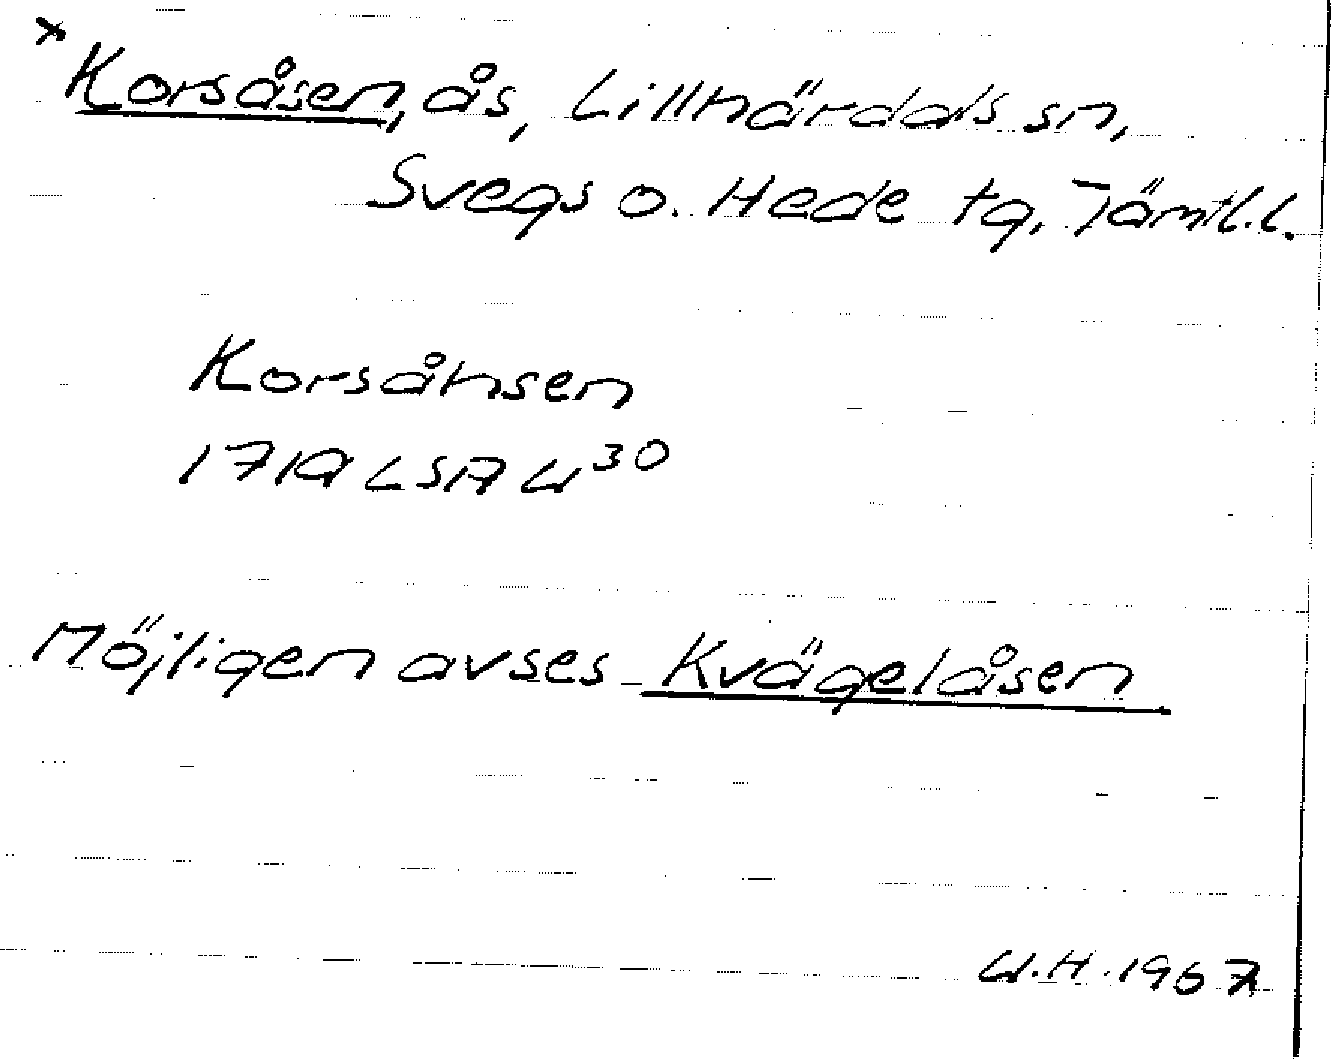 * Korsåsen, ås, Lillhärdals sn,
Svegs o. Hede tg, Jämtl.l.
Korsåhsen
1719 LSA U³⁰
Möjligen avses Kvägelåsen
U.H. 1967